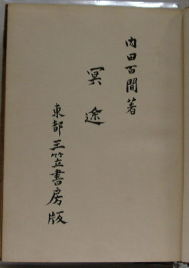 内田百間著
冥途
東都三笠書房版